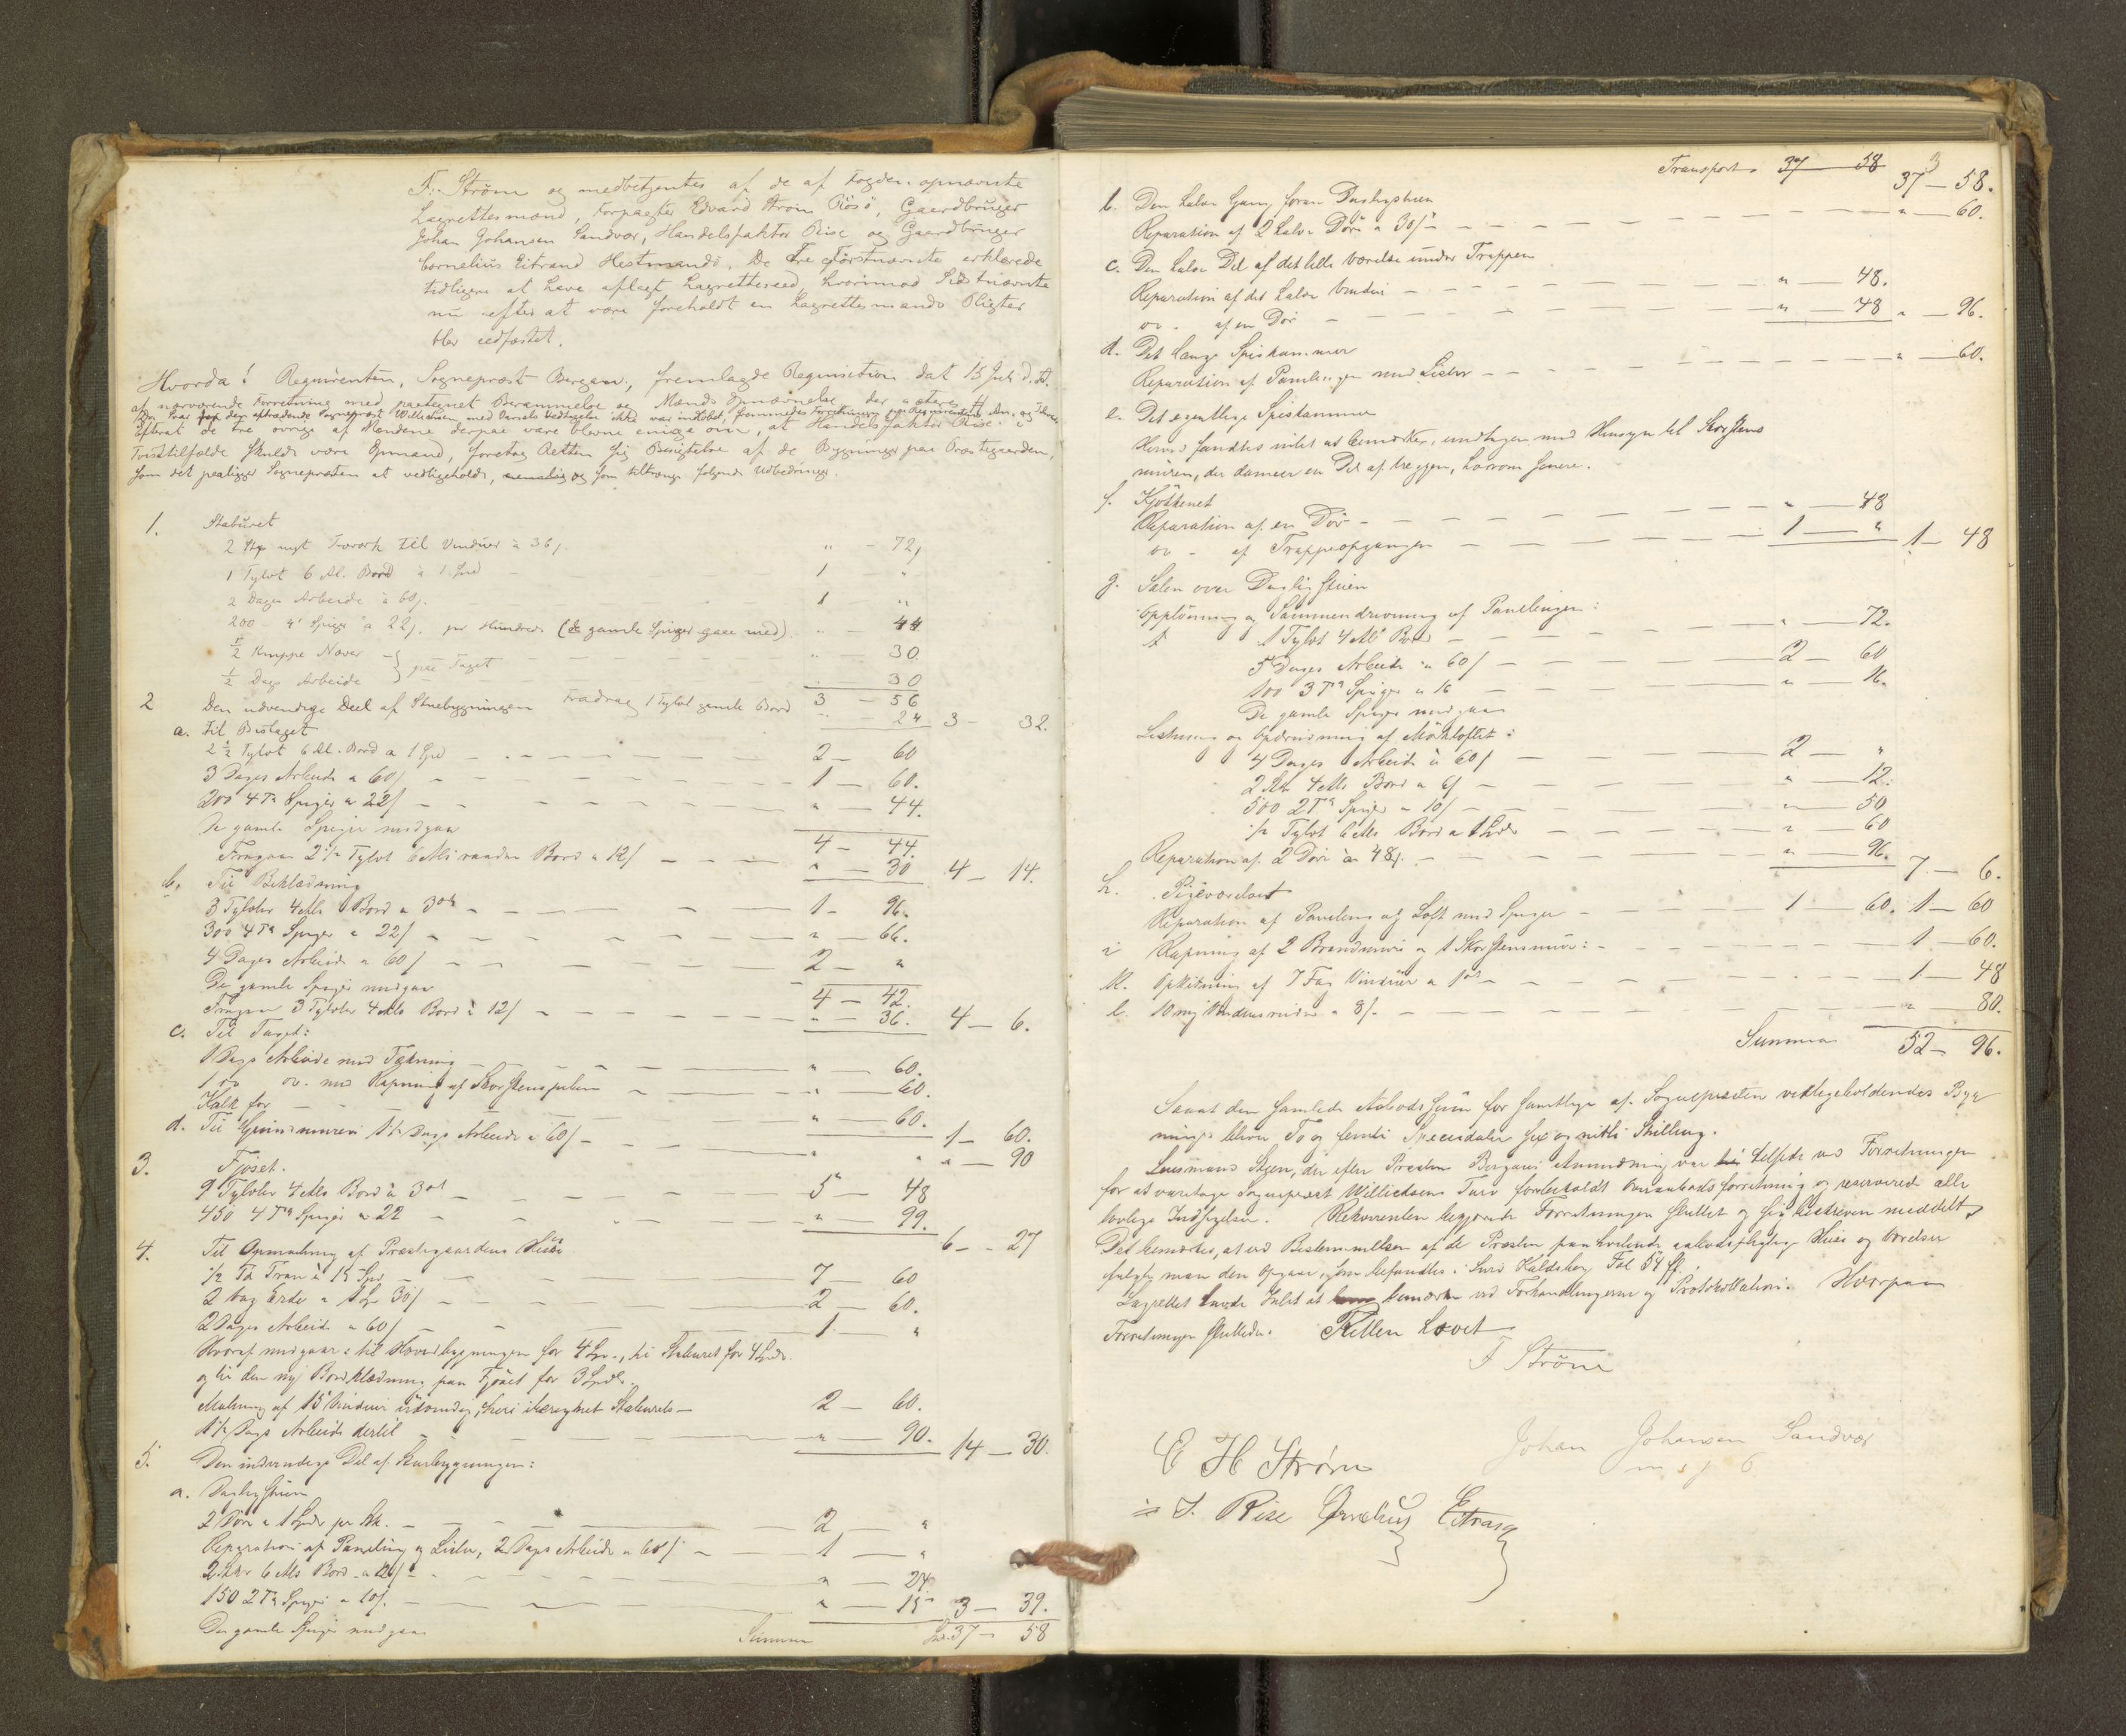 F. Strøm og medbetjentes af de af Fogden opnævnte
Lagrettesmænd, Forpagter Edvard Strøm Rösö, Gaardbruger
Johan Johansen Sandvær, Handelsfaktor Rise og Gaardbruger
Cornelius Eitrand Hestmandö. De Tre Förstnævnte erklærede
tidligere at have aflagt Lagretteseed, hvorimod Sidstnævnte
nu efter at være foreholdt en Lagrettesmands Pligter
blev edfæstet.
Hvorda! Requirenten, Sognepræst Bergan, fremlagde Requisition dat 15 Juli d. A.
af nærværende Forretning med paategnet Berammelse og Mænds Opnævnelse, der acteres
Efterat de tre øvrige af Mændene derpaa vare blevne enige om, at Handelsfaktor Rise i
Tvisttilfælde skulde være Opmand, foretog Retten sig Besigtelse af de Bygninger paa Præstegaarden,
som det paaligger Sognepræsten at vedligeholde, og som tiltrænge følgende Udbedringer.
1. Staburet
2 Stkr nyt Træværk til Vinduer à 36 s. " - 72,
1 Tylvt 6 Al. Bord à 1 Spd 1 - "
2 Dages Arbeide à 60 s. 1 - "
200 - 4" Spiger à 22 s. pr Hundrede (de gamle Spiger gaae med) " - 44
1/2 Knippe Næver } paa Taget " - 30
1/2 Dags Arbeide - 30
3 - 56
2 Den udvendige Deel af Stuebygningen Fradrag 1 Tylvt gamle Bord " - 24 3 - 32.
a. Til Bistaget
2 1/2 Tylvt 6 Al. Bord a 1 Spd 2 - 60
3 Dages Arbeide a 60 s 1 - 60.
200 4 Ta Spiger a 22 s " - 44.
De gamle Spiger medgaa 4 - 44.
Fragaar 2 1/2 Tylvt 6 Als raadne Bord a 12 s " - 30 4 - 14.
b. Til Beklædning
3 Tylvter 4 Als Bord a 3 ort 1 - 96.
300 4 Ta Spiger a 22 s " - 66.
4 Dages Arbeide a 60 s 2 - "
De gamle Spiger medgaa 4 - 42.
Fragaar 3 Tylvter 4 Als Bord à 12 s " - 36. 4 - 6.
c. Til Taget:
1 Dags Arbeide med Tækning " - 60.
1 do do. med Rapning af Skorstenspiben " - 60.
Kalk for " - 60. 1 - 60.
d. Til Grundmuren 1 1/2 Dags Arbeide à 60 s " - 90
3. Fjøset.
9 Tylvter 4 Als Bord à 3 ort 5 - 48
450 4 Ta Spiger a 22 " - 99. 6 - 27
4. Til Opmaling af Præstegaardens Huse
1/2 Td Tran à 15 Spd 7 - 60
2 Vog Erde a 1 Sp 30 s 2 - 60.
2 Dages Arbeide a 60 s 1 - "
Hvoraf medgaar: til Hovedbygningen for 4 Spd., til Staburet for 4 Spdr.
og til den ny Bordklædning paa Fjöset for 3 Spdlr.
Malning af 15 Vinduer udvendig, heri iberegnet Staburets 2 - 60.
1 1/2 Dags Arbeide dertil " - 90. 14 - 30.
5. Den indvendige Del af Stuebygningen:
a. Dagligstuen
2 Döre a 1 Spdr pr Stk. 2 - "
Reparation af Paneling og Lister, 2 Dages Arbeide a 60 s 1 - "
2 Stkr 6 Als Bord a 12 s " - 24.
150 2 Ta Spiger a 10 s. " - 15 3 - 39.
De gamle Spiger medgaa Summa Spd. 37 - 58
Transport 37 - 58 37 - 58.
b. Den halve Gang foran Dagligstuen
Reparation af 2 halve Döre a 30 s " - 60.
c. Den halve Del af det lille Værelse under Trappen
Reparation af det halve Vindu " - 48.
do. af en Dör " - 48 " - 96.
d. Det lange Spiskammer
Reparation af Panelingen med Lister " - 60.
e. Det egentlige Spiskammer
Herved fandtes intet at bemærke, undtagen med Hensyn til Skorstens
muren, der danner en Del af Væggen, hvorom senere.
f. Kjøkkenet
Reparation af en Dör " - 48
do - af Trappeopgangen 1 - " 1 - 48
g. Salen over Dagligstuen
Oppløsning og Sammendrivning af Panelingen:
1 Tylvt 4 Als Bord " - 72.
5 Dages Arbeide a 60 s 2 - 60
100 3 Ta Spiger a 16 " - 16.
De gamle Spiger medgaa
Listning og Opdrivning af Mørkloftet:
4 Dages Arbeide à 60 s 2 - "
2 Stkr 4 Als Bord a 6 s " - 12.
500 2 Ta Spiger a 10 s " - 50
1/2 Tylvt 6 Als Bord a 1 Spdr " - 60
Reparation af 2 Döre à 48 s. " - 96. 7 - 6.
h. Pigeværelset
Reparation af Paneling og Loft med Spiger 1 - 60. 1 - 60
i Rapning af 2 Brandmure og 1 Skorstensmuur: 1 - 60.
k. Opkitning af 7 Fag Vinduer a 1 ort 1 - 48
l. 10 ny Vinduesruder a 8 s. " - 80.
Summa 52 - 96.
Saaat den samlede Aabodssum for samtlige af Sognepræsten vedligeholdendes Byg
ninger bliver To og femti Speciedaler sex og nitti Skilling.
Lensmand Skjen, der efter Præsten Bergans Anmodning var tilstede ved Forretningen
for at varetage Sognepræst Willichsens Tarv forbeholdt Overaabodsforretning og reserverede alle
lovlige Indsigelser. Rekvirenten begjærede Forretningen sluttet og sig beskreven meddelt.
Det bemærkes, at ved Bestemmelsen af de Præsten paahvilende aabodspligtige Huse og Værelser
fulgte man den Opgave, som befandtes i Lurö Kaldsbog Fol 54 ff.
Lagrettet havde Intet at bemærke ved Forhandlingerne og Protokollationen. Hvorpaa
Forretningen sluttedes. Retten hævet
F Strøm
E H Strøm
Johan Johansen Sandvær
m s p
J. Rise Cornelius Eitrand